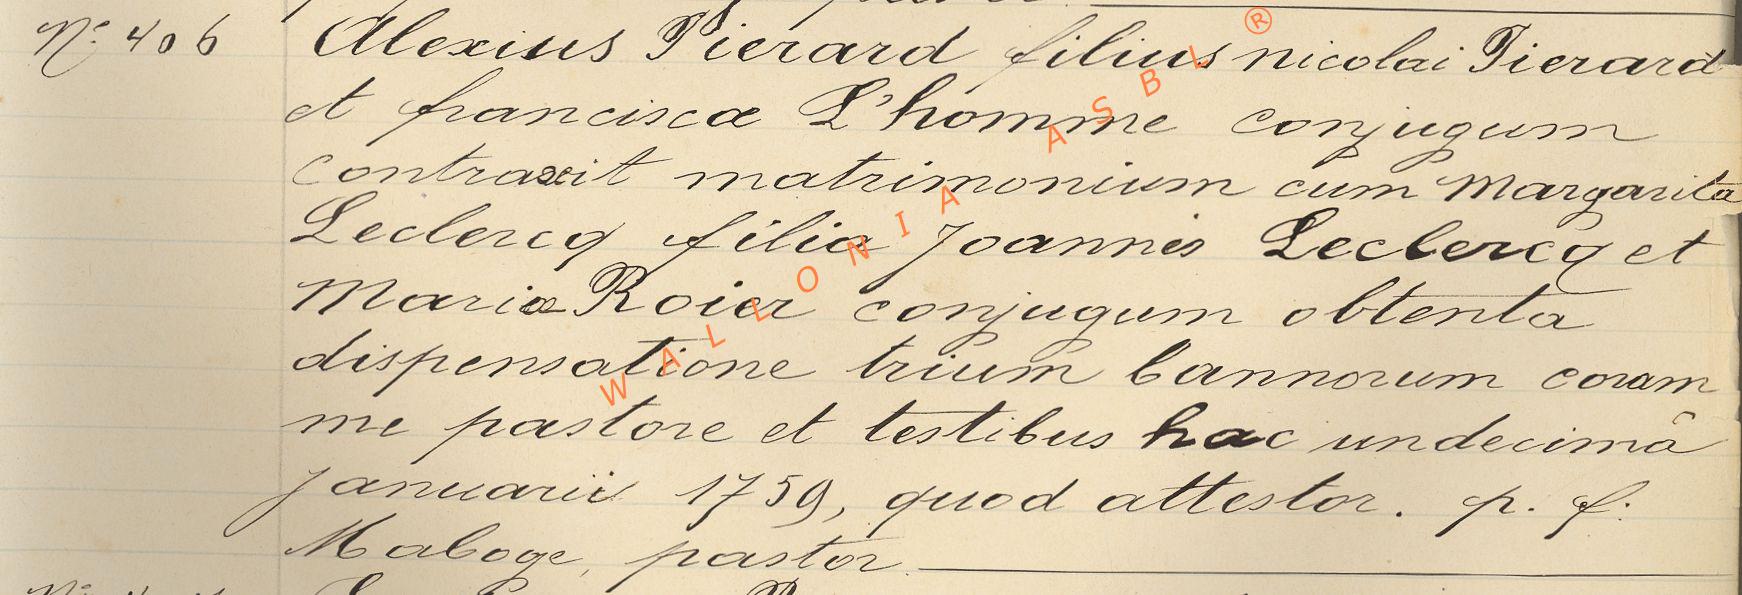 N° 406 Alexius Pierard filius nicolai Pierard
et franciscæ L'homme conjugum
contraxit matrimonium cum Margarita
Leclercq filia Joannis Leclercq et
Mariæ Roier conjugum obtenta
dispensatione trium bannorum coram
me pastore et testibus hac undecimâ
januarii 1759, quod attestor. p. f.
Maboge, pastor
WALLONIA ASBL ®